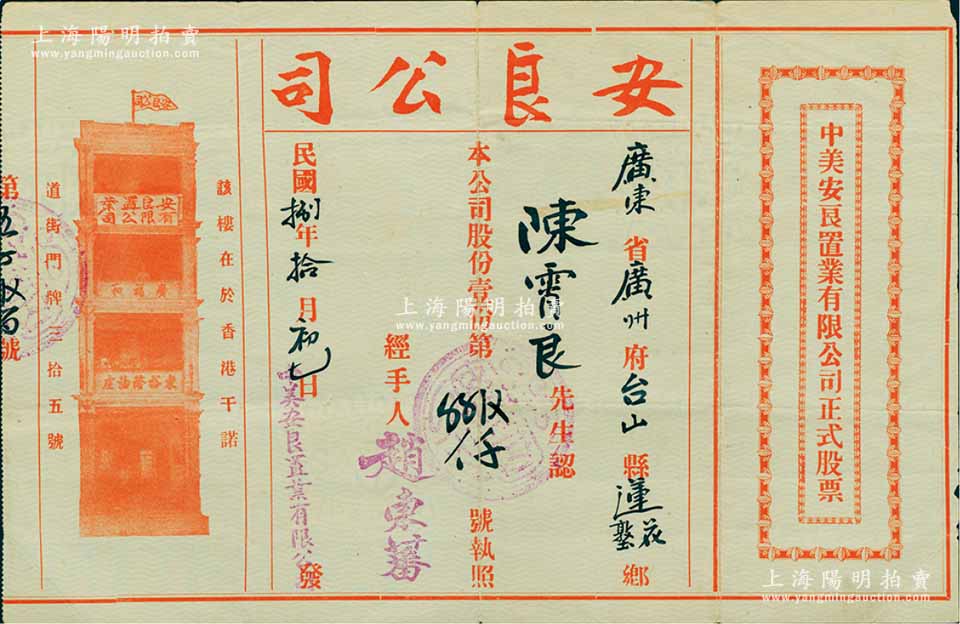 上海陽明拍賣
www.yangmingauction.com
中美安良置業有限公司正式股票
安良公司
廣東省廣州府台山縣蓮花鄉
陳霄良先生認
本公司股份壹份第 號執照
經手人趙東蕃
民國捌年拾月初七日 發
美安良置業有限公
該樓在於香港干諾
道街門牌三拾五號
安良置業
有限公司
第 號
上海陽明拍賣
www.yangmingauction.com
上海陽明拍賣
www.yangmingauction.com